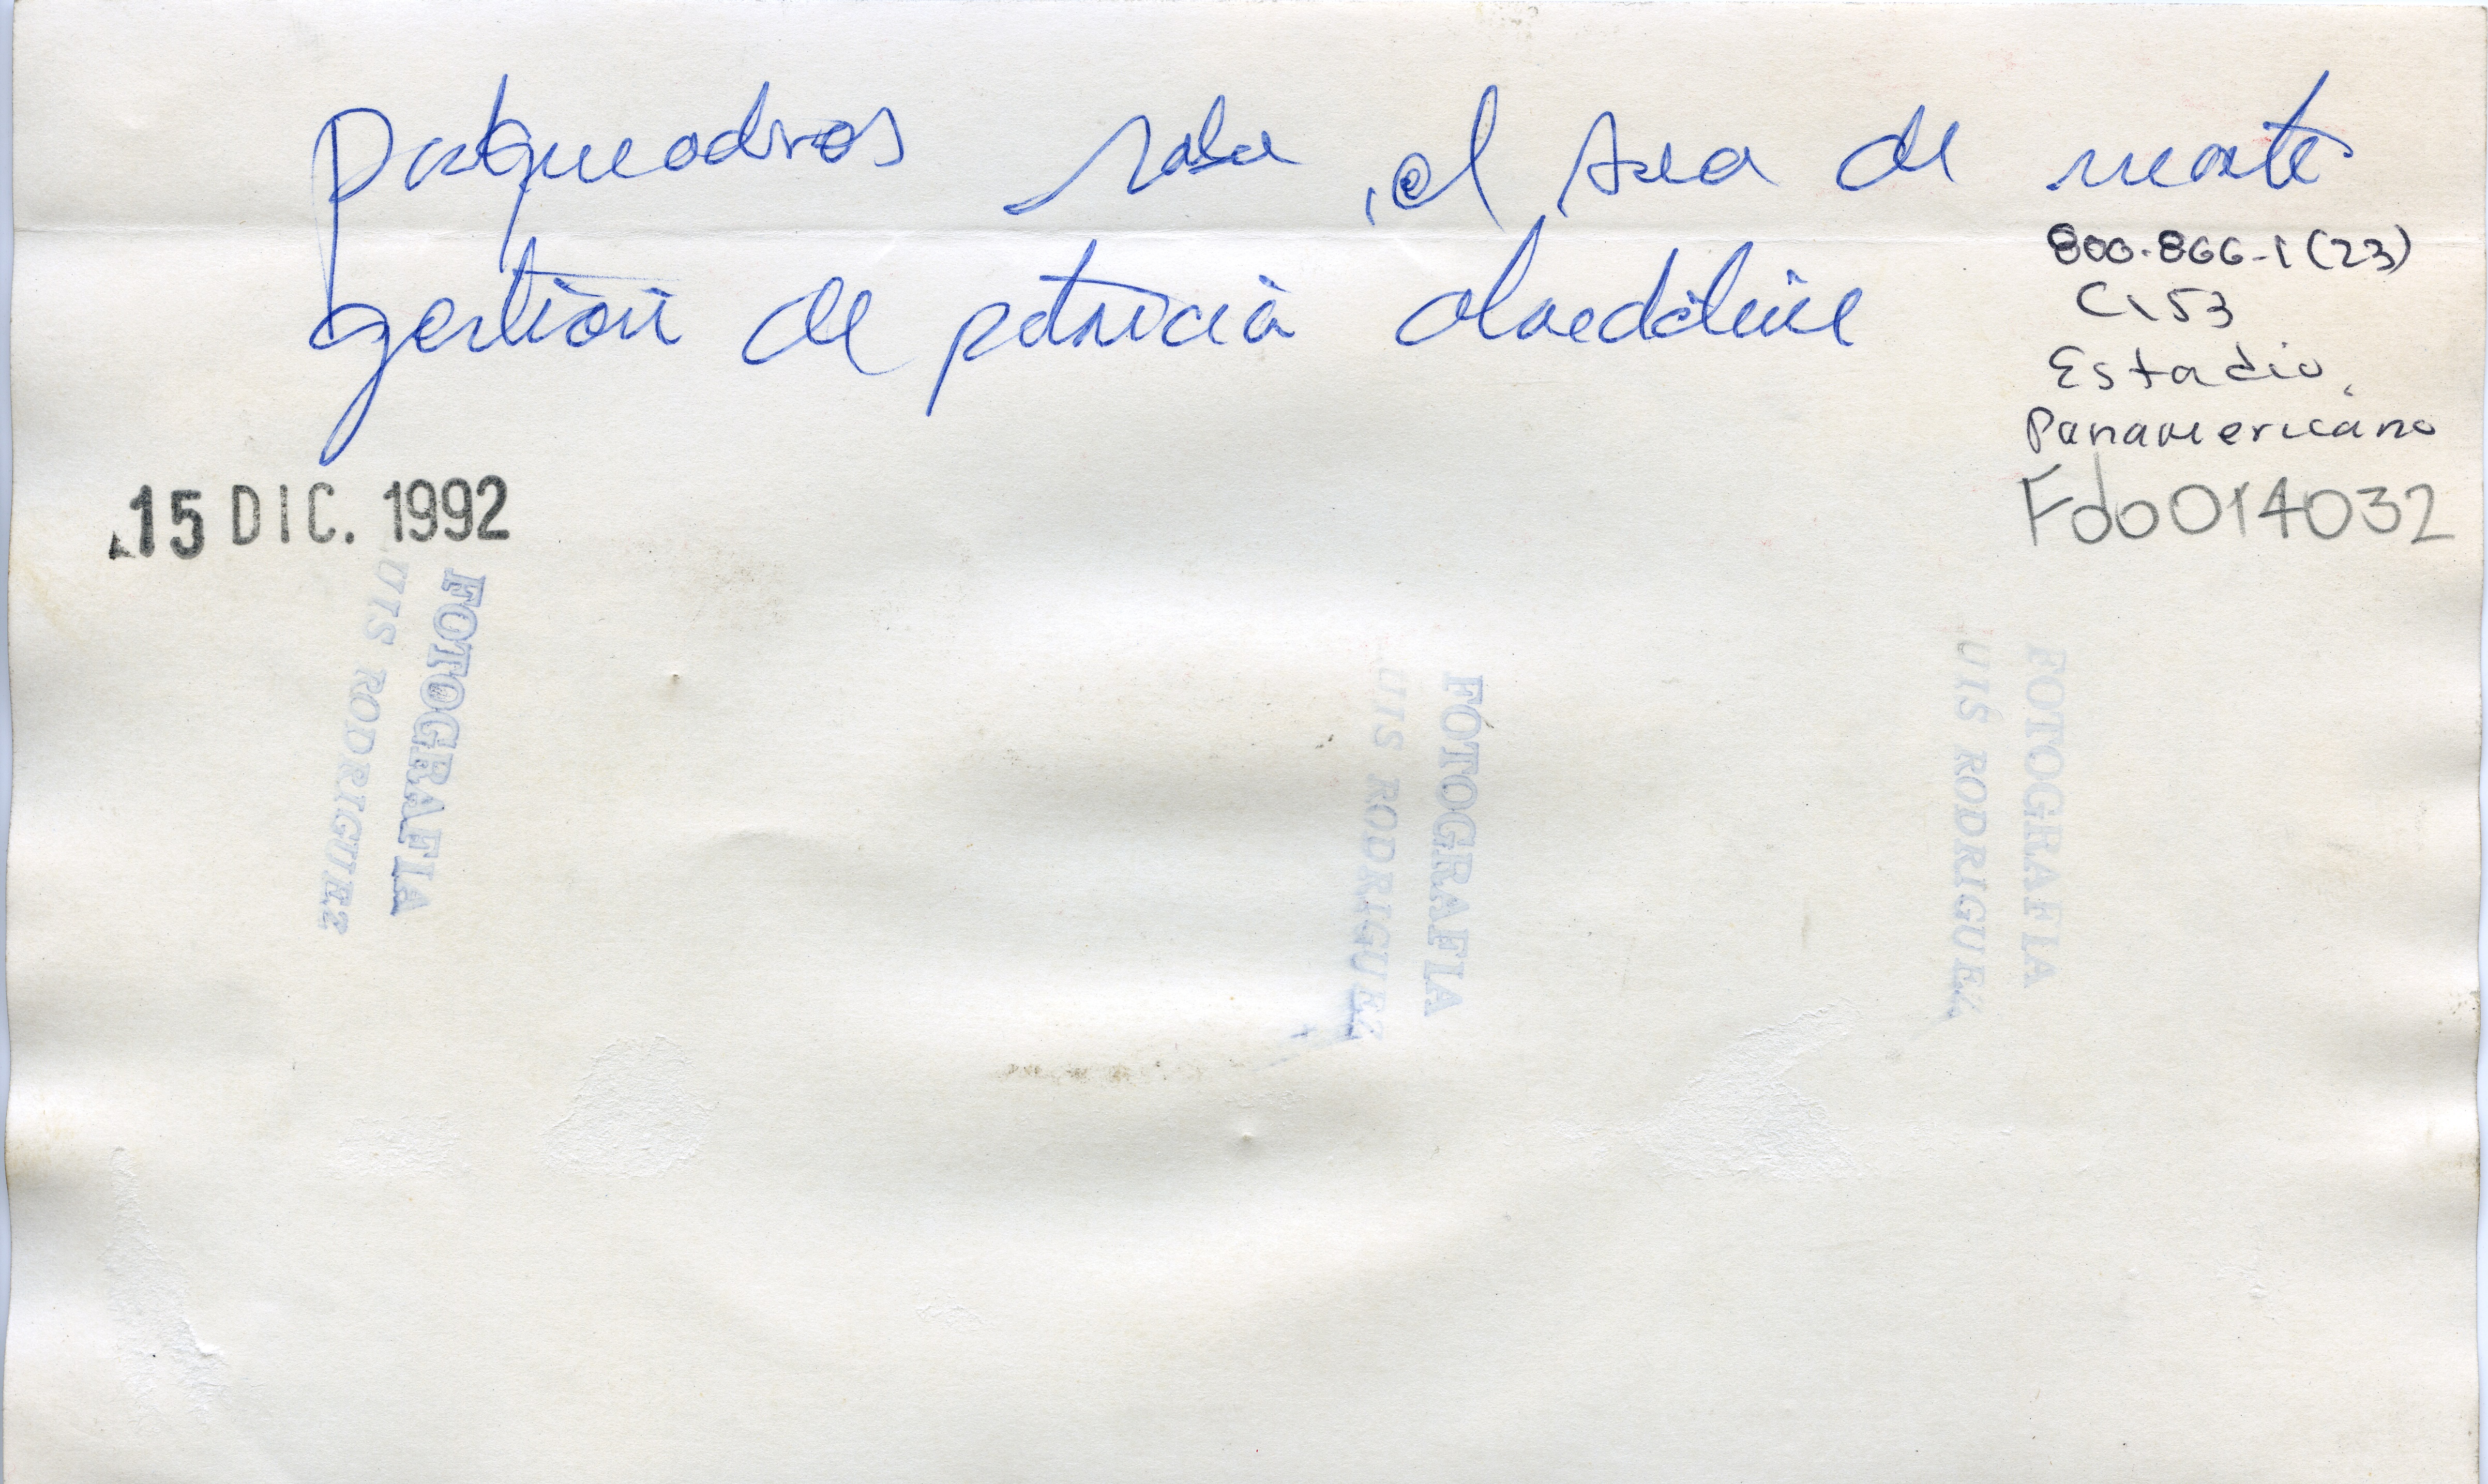 Parqueadros sobre el área de
gestión de patricia
800-866-1 (23)
C153
Estadio
Panamericano
Fdo014032
15 DIC. 1992
FOTOGRAFIA
UIS RODRIGUEZ
FOTOGRAFIA
UIS RODRIGUEZ
FOTOGRAFIA
UIS RODRIGUEZ